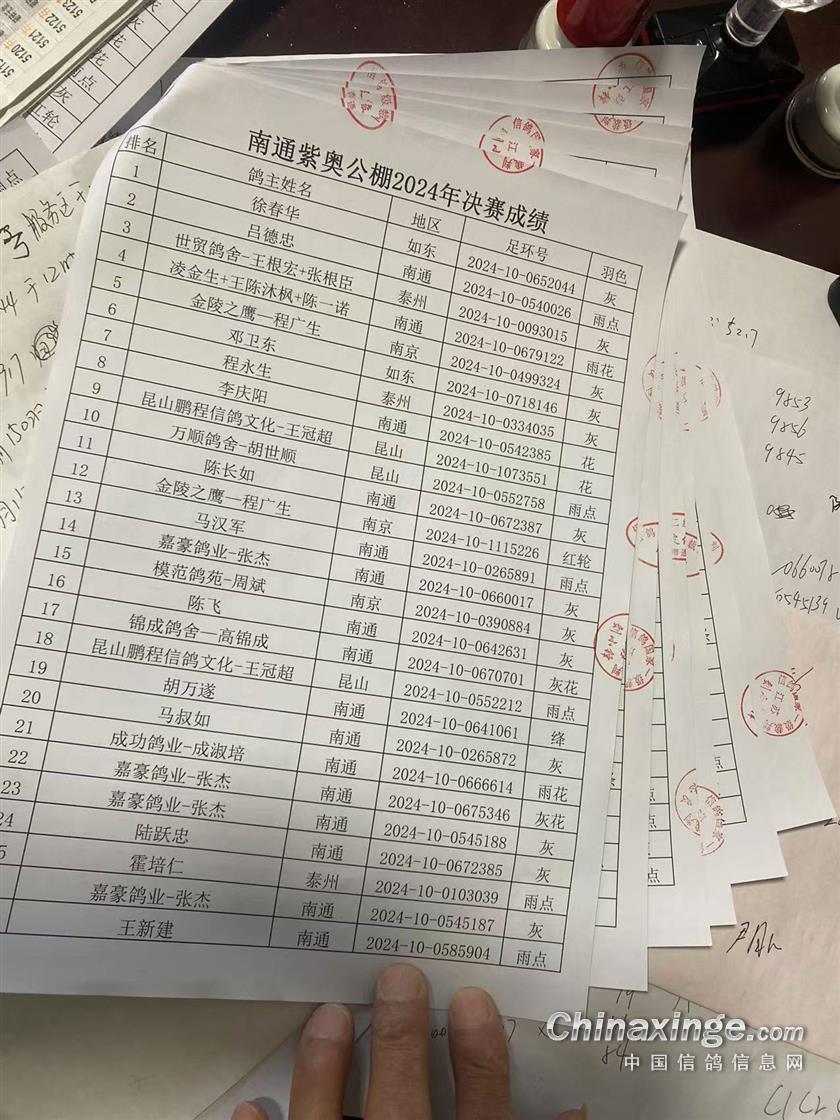 南通紫奥公棚2024年决赛成绩
排名 鸽主姓名 地区 足环号 羽色
1 徐春华 如东 2024-10-0652044 灰
2 吕德忠 南通 2024-10-0540026 雨点
3 世贸鸽舍-王根宏+张根臣 泰州 2024-10-0093015 灰
4 凌金生+王陈沐枫+陈一诺 南通 2024-10-0679122 雨花
5 金陵之鹰—程广生 南京 2024-10-0499324 灰
6 邓卫东 如东 2024-10-0718146 灰
7 程永生 泰州 2024-10-0334035 灰
8 李庆阳 南通 2024-10-0542385 花
9 昆山鹏程信鸽文化-王冠超 昆山 2024-10-1073551 花
10 万顺鸽舍-胡世顺 昆山 2024-10-0552758 雨点
11 陈长如 南通 2024-10-0672387 灰
12 金陵之鹰—程广生 南京 2024-10-1115226 红轮
13 马汉军 南通 2024-10-0265891 雨点
14 嘉豪鸽业-张杰 南通 2024-10-0660017 灰
15 模范鸽苑-周斌 南京 2024-10-0390884 灰
16 陈飞 南通 2024-10-0642631 灰
17 锦成鸽舍—高锦成 南通 2024-10-0670701 灰花
18 昆山鹏程信鸽文化-王冠超 昆山 2024-10-0552212 雨点
19 胡万遂 南通 2024-10-0641061 绛
20 马叔如 南通 2024-10-0265872 灰
21 成功鸽业-成淑培 南通 2024-10-0666614 雨花
22 嘉豪鸽业-张杰 南通 2024-10-0675346 灰花
23 嘉豪鸽业-张杰 南通 2024-10-0545188 灰
24 陆跃忠 南通 2024-10-0672385 灰
5 霍培仁 泰州 2024-10-0103039 雨点
嘉豪鸽业-张杰 南通 2024-10-0545187 灰
王新建 南通 2024-10-0585904 雨点
9853
9856
9845
Chinaxinge.com
中国信鸽信息网